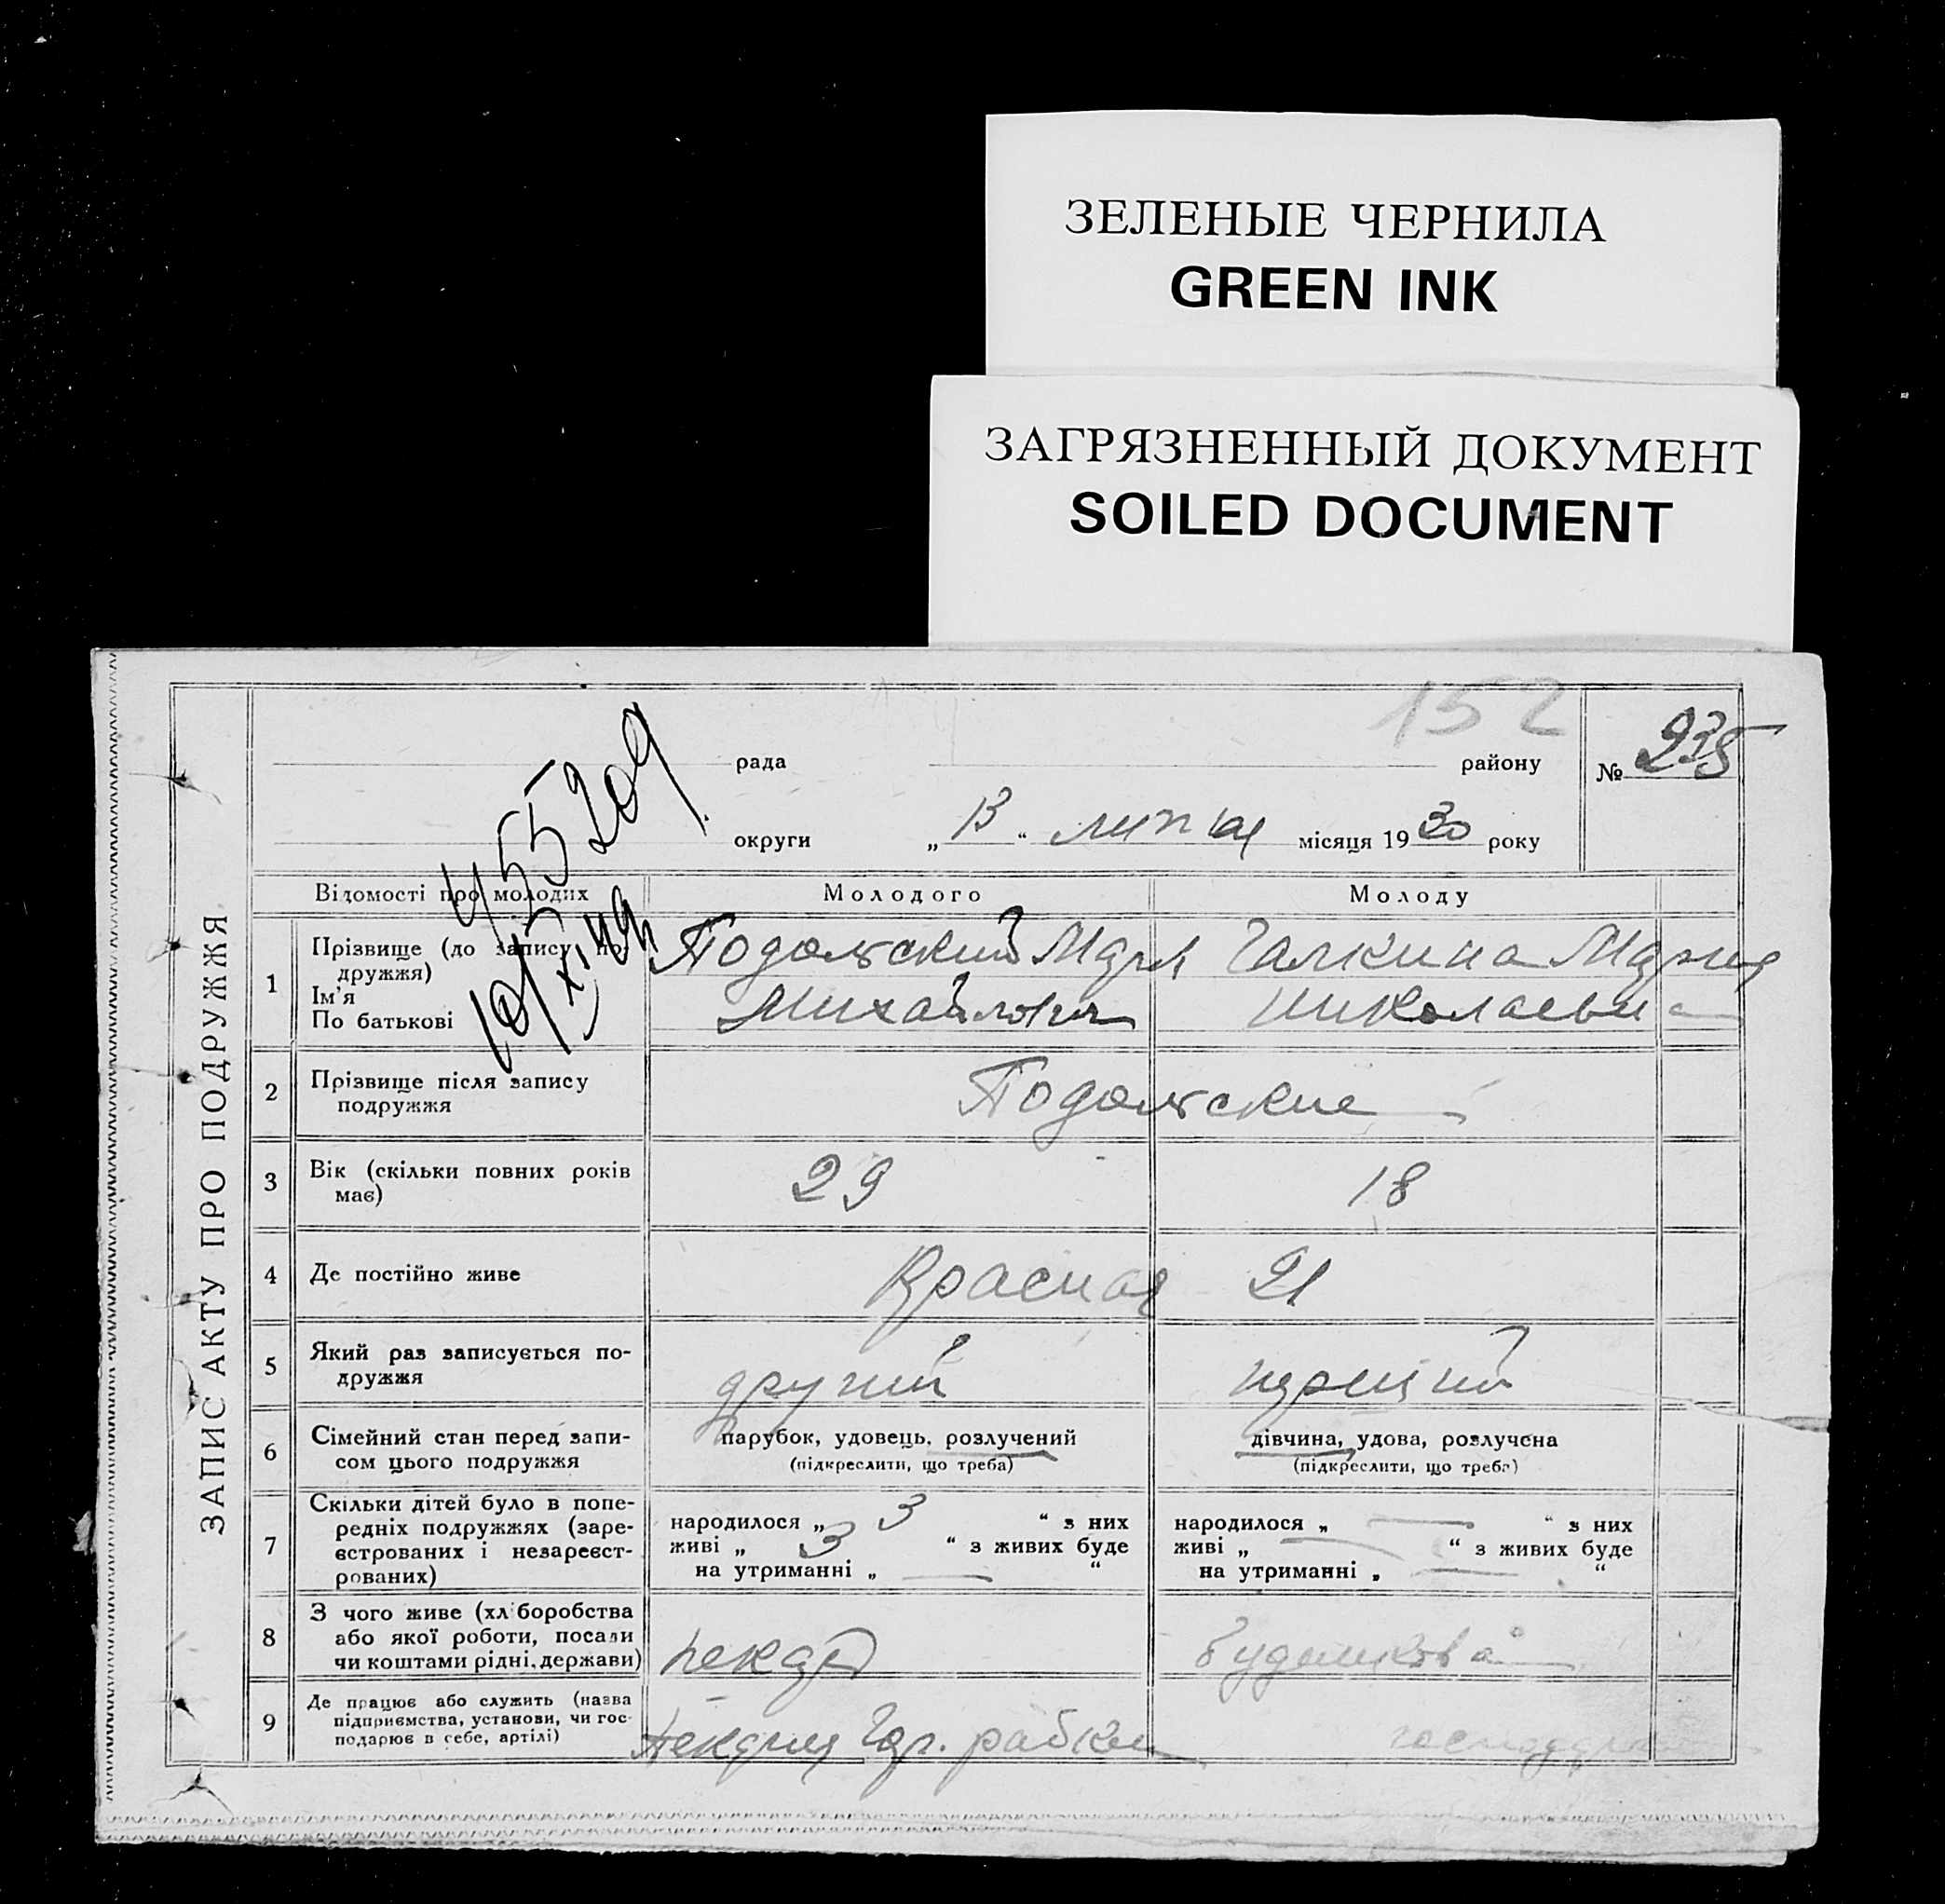 ЗЕЛЕНЫЕ ЧЕРНИЛА
GREEN INK
ЗАГРЯЗНЕННЫЙ ДОКУМЕНТ
SOILED DOCUMENT
152
рада району № 235
округи „ 13 “ липня місяця 1930 року
455209
ЗАПИС АКТУ ПРО ПОДРУЖЖЯ
Відомості про молодих Молодого Молоду
1 Прізвище (до запису по-
дружжя)
Ім'я
По батькові
Подольский Марк
Михайлович
Галкина Мария
Николаевна
2 Прізвище після запису
подружжя
Подольские
3 Вік (скільки повних років
має)
29 18
4 Де постійно живе
Красная 21
5 Який раз записується по-
дружжя
другий перший
6 Сімейний стан перед запи-
сом цього подружжя
парубок, удовець, розлучений
(підкреслити, що треба)
дівчина, удова, розлучена
(підкреслити, що треба)
7 Скільки дітей було в попе-
редніх подружжях (заре-
єстрованих і незареєст-
рованих)
народилося „ 3 “ з них
живі „ 3 “ з живих буде
на утриманні „ — “
народилося „ — “ з них
живі „ — “ з живих буде
на утриманні „ — “
8 З чого живе (хліборобства
або якої роботи, посади
чи коштами рідні, держави)
пекар
9 Де працює або служить (назва
підприємства, установи, чи гос-
подарює в себе, артілі)
Пекарня